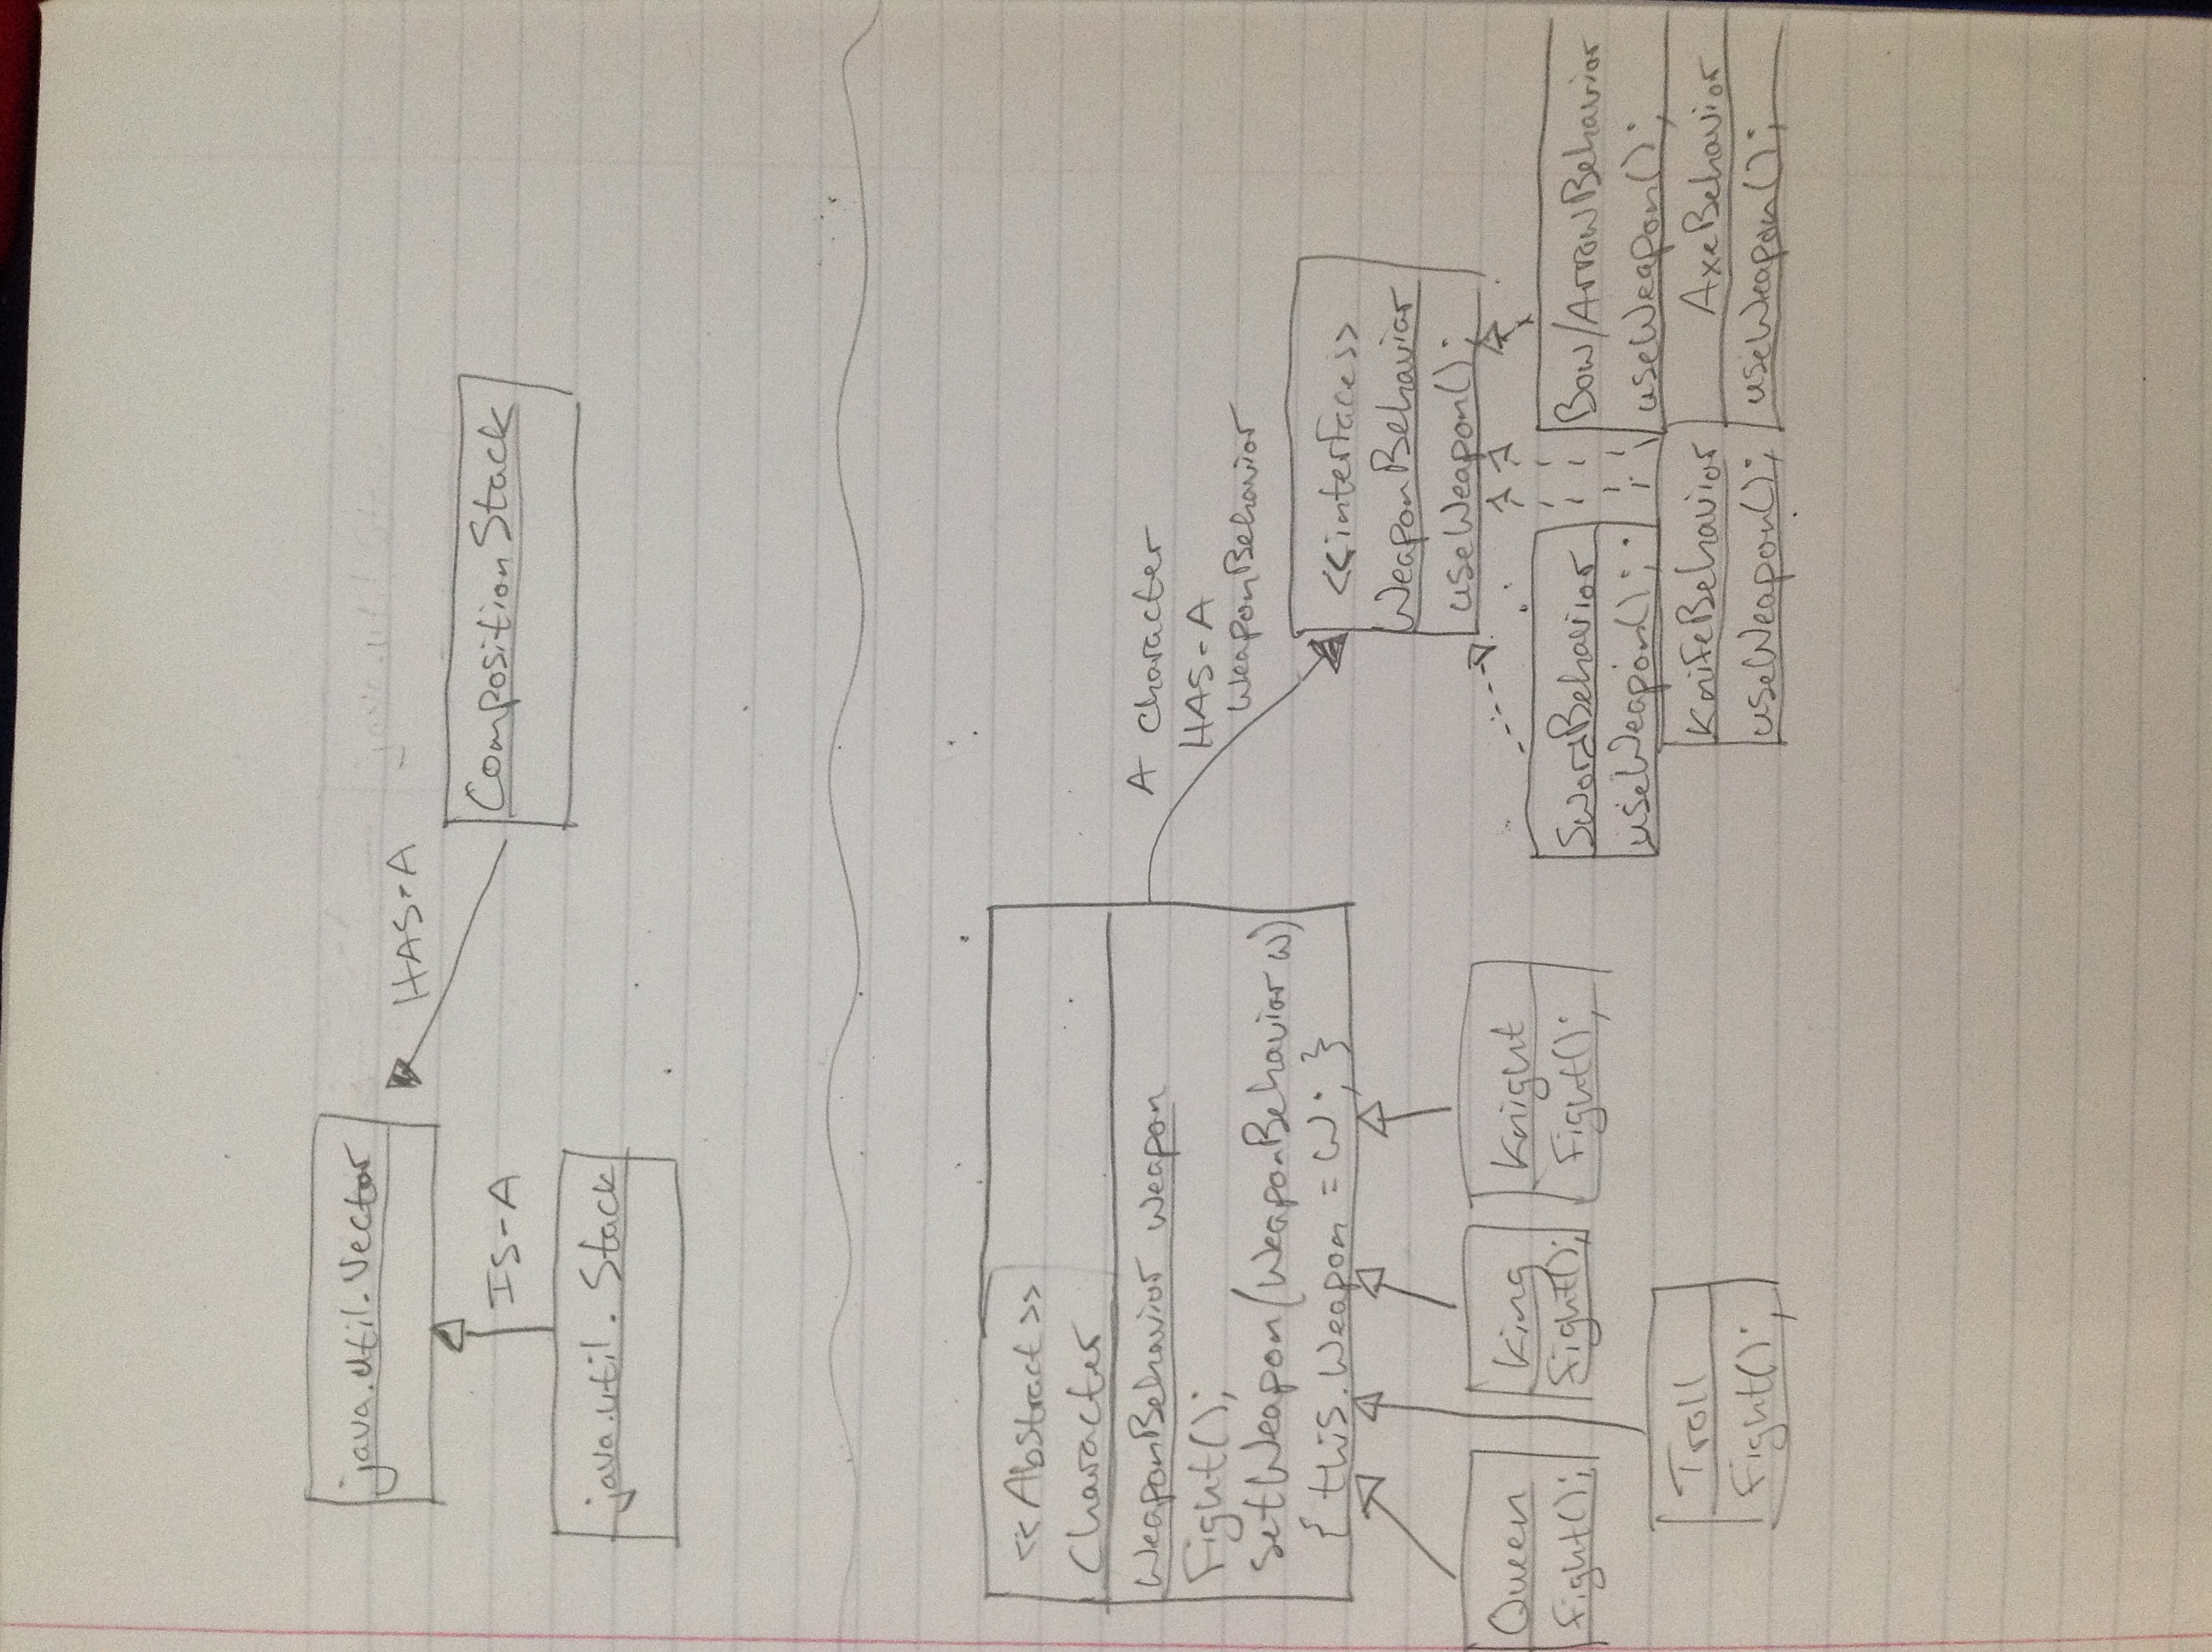 java.util.Vector
HAS-A
IS-A
CompositionStack
java.util.Stack
<<Abstract>>
Character
WeaponBehavior weapon
Fight();
setWeapon(WeaponBehavior w)
{ this.Weapon = w; }
A character
HAS-A
WeaponBehavior
<<interface>>
WeaponBehavior
useWeapon();
Queen
Fight();
King
Fight();
Knight
Fight();
Troll
Fight();
SwordBehavior
useWeapon();
Bow/ArrowBehavior
useWeapon();
KnifeBehavior
useWeapon();
AxeBehavior
useWeapon();